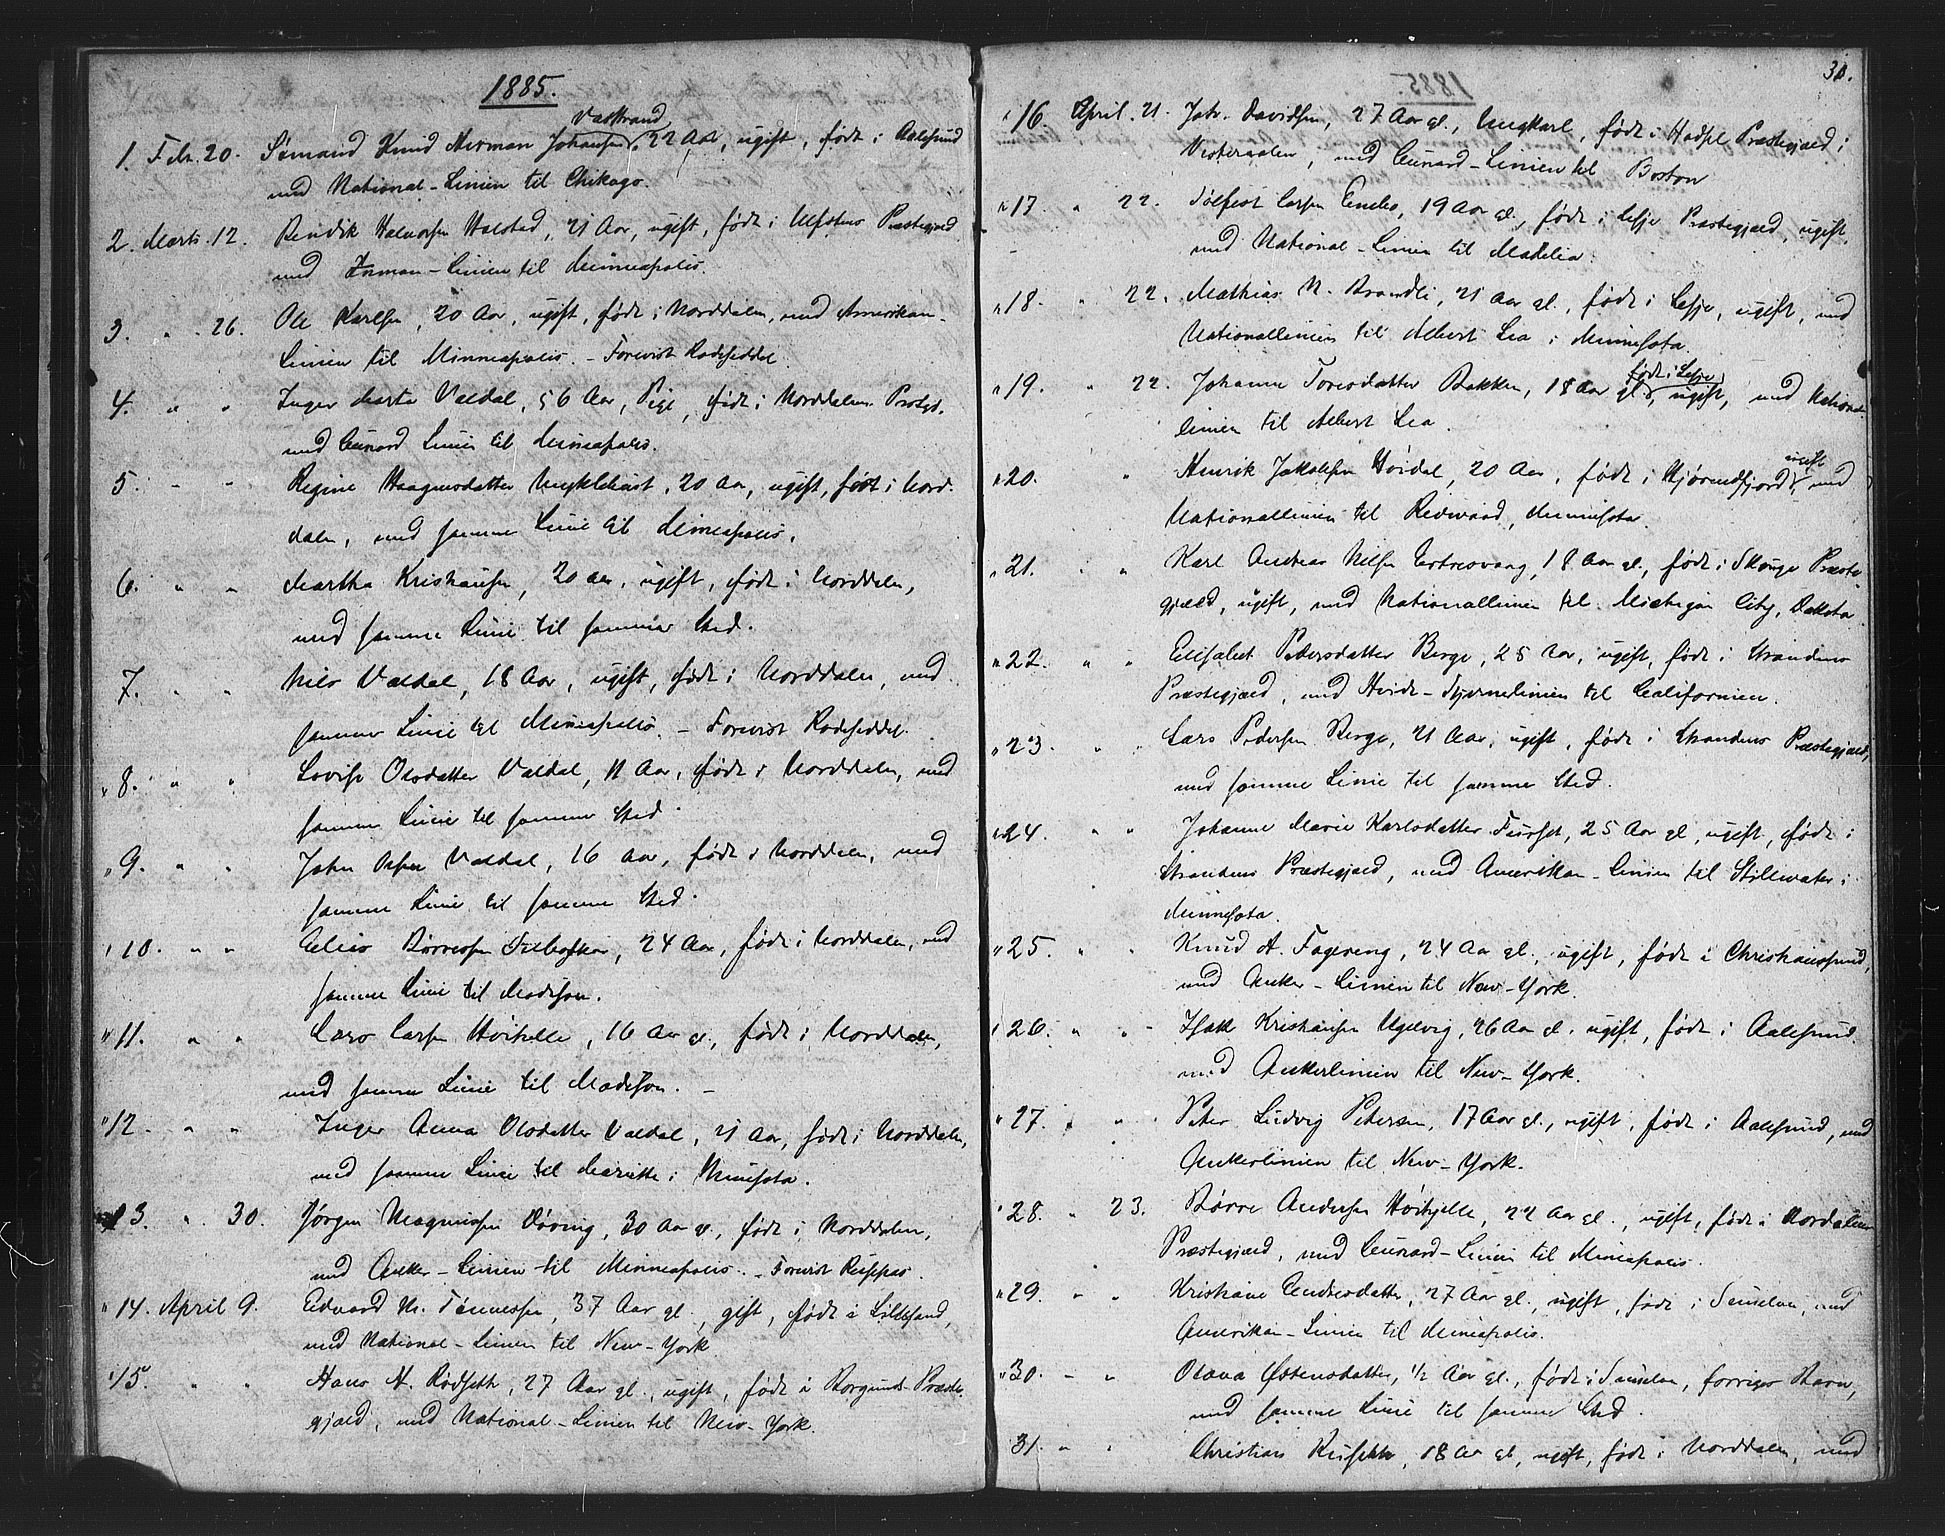 1885.
Vattrand
1. Febr. 20. Sømand Knud Herman Johansen, 22 Aar, ugift, født i Aalesund
med National-Linien til Chikago.
2. Marts. 12. Bendik Halvorsen Halstad, 21 Aar, ugift, født i Ulfstens Præstegjæld
med Inman-Linien til Minneapolis.
3. " 26. Ole Karlsen, 20 Aar, ugift, født i Norddalen, med Amerikan-
Linien til Minneapolis. - Forevist Rodeseddel.
4. " " Inger Marta Valdal, 56 Aar, Pige, født i Norddalens Prstgd.
med Cunard Linien til Mineapolis.
5. " " Regine Haagensdatter Myklebust, 20 Aar, ugift, født i Nord-
dalen, med samme Linie til Mineapolis.
6. " " Martha Kristiansen, 20 Aar, ugift, født i Norddalen,
med samme Linie til samme Sted.
7. " " Nils Valdal, 18 Aar, ugift, født i Norddalen, med
samme Linie til Mineapolis. - Forevist Rodeseddel.
" 8. " " Lovise Olsdatter Valdal, 11 Aar, født i Norddalen, med
samme Linie til samme Sted.
" 9. " " John Valdal, 16 Aar, født i Norddalen, med
samme Linie til samme Sted.
" 10. " " Elias 24 Aar, født i Norddalen, med
samme Linie til Madison.
" 11. " " Lars Larsen Høihelle, 16 Aar gl., født i Norddalen,
med samme Linie til Madison. -
" 12. " " Inger Anna Olsdatter Valdal, 21 Aar, født i Norddalen,
med samme Linie til i Minesota.
13. " 30. Jørgen Magnussen Døving, 30 Aar gl., født i Norddalen,
med Anker-Linien til Minneapolis. - Forevist
" 14. April 9. Edvard M. Tønnessen, 37 Aar gl., gift, født i Lillesand,
med National-Linien til New-York.
" 15. " " Hans H. Rødseth, 27 Aar gl., ugift, født i Borgunds Præste-
gjæld, med National-Linien til New-York.
31.
" 16 April. 21. Joh. Davidsen, 27 Aar gl., Ungkarl, født i Hadsel Præstegjæld i
Vesteraalen, med Cunard-Linien til Boston
" 17. " 22. Larsen 19 Aar gl., født i Lesje Præstegjæld, ugift,
med National-Linien til Madelia.
" 18. " 22. Mathias N. Brandli, 21 Aar gl., født i Lesje, ugift, med
Nationallinien til Albert Lea i Minnesota.
født i Lesje
" 19. " 22. Johanne Toresdatter Bakken, 18 Aar gl., ugift, med National-
linien til Albert Lea.
ugift
" 20. " Henrik Jakobsen Høidal, 20 Aar, født i Hjørendfjord, med
Nationallinien til Redwood, Minnesota.
" 21. " " Karl Andreas Nilsen 18 Aar gl., født i Præste-
gjæld, ugift, med Nationallinien til Michigan City, Dakota.
" 22. " " Elisabet Pedersdatter Berge, 25 Aar, ugift, født i Strandens
Præstegjæld, med Hvide-Stjernelinien til Californien.
" 23. " " Lars Pedersen Berge, 21 Aar, ugift, født i Strandens Præstegjæld,
med samme Linie til samme Sted.
" 24. " " Johanne Marie Karlsdatter Furset, 25 Aar gl., ugift, født i
Strandens Præstegjæld, med Amerikan-Linien til Stillwater i
Minnesota.
" 25. " " Knud A. Fagereng, 24 Aar gl., ugift, født i Christianssund,
med Anker-Linien til New-York.
" 26. " " Isak Kristiansen Ugelvig, 26 Aar gl. ugift, født i Aalesund.
med Ankerlinien til New-York.
" 27. " " Peter Ludvig Petersen, 17 Aar gl., ugift, født i Aalesund, med
Ankerlinien til New-York.
" 28. " 23. Børre Andersen Høihjelle, 22 Aar gl., ugift, født i Nordalens
Præstegjæld, med Cunard-Linien til Mineapolis.
" 29. " " Kristiane Endresdatter, 27 Aar gl., ugift, født i med
Amerikan-Linien til Mineapolis.
" 30. - " Olava Østensdatter, 1/2 Aar gl., født i forriges Barn,
med samme Linie til samme Sted.
31. " " Christian 18 Aar gl., ugift, født i Norddalen, med